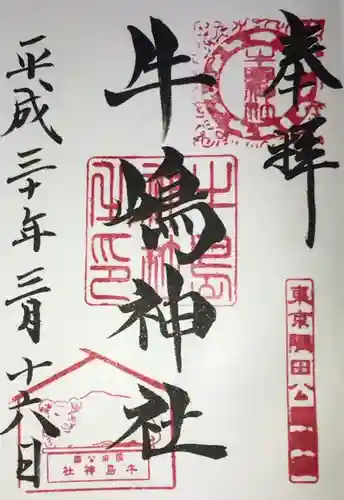 奉拝
牛嶋神社
平成三十年三月十六日
東京隅田公園
隅田公園
牛島神社